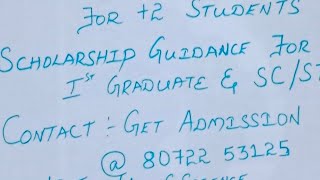 FOR +2 STUDENTS
SCHOLARSHIP GUIDANCE FOR
Ist GRADUATE & SC/ST
CONTACT :- GET ADMISSION
@ 80722 53125